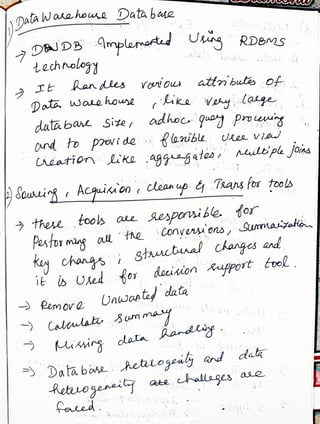 1) Data Warehouse Database
→ DWDB Implemented Using RDBMS
technology
→ It handles various attributes of
Data Warehouse, like very large
database size, adhoc query processing
and to provide flexible user view
creation like aggregates, multiple joins
2) Sourcing, Acquision, cleanup & Transfor tools
→ these tools are responsible for
Performing all the conversions, Summarization
key changs, structural changes and
it is used for decision support tool.
→ Remove Unwanted data
→ Calculate Summary
→ Missing data handling.
⇒ Database heterogeity and data
heterogeneity are challeges are
faced.